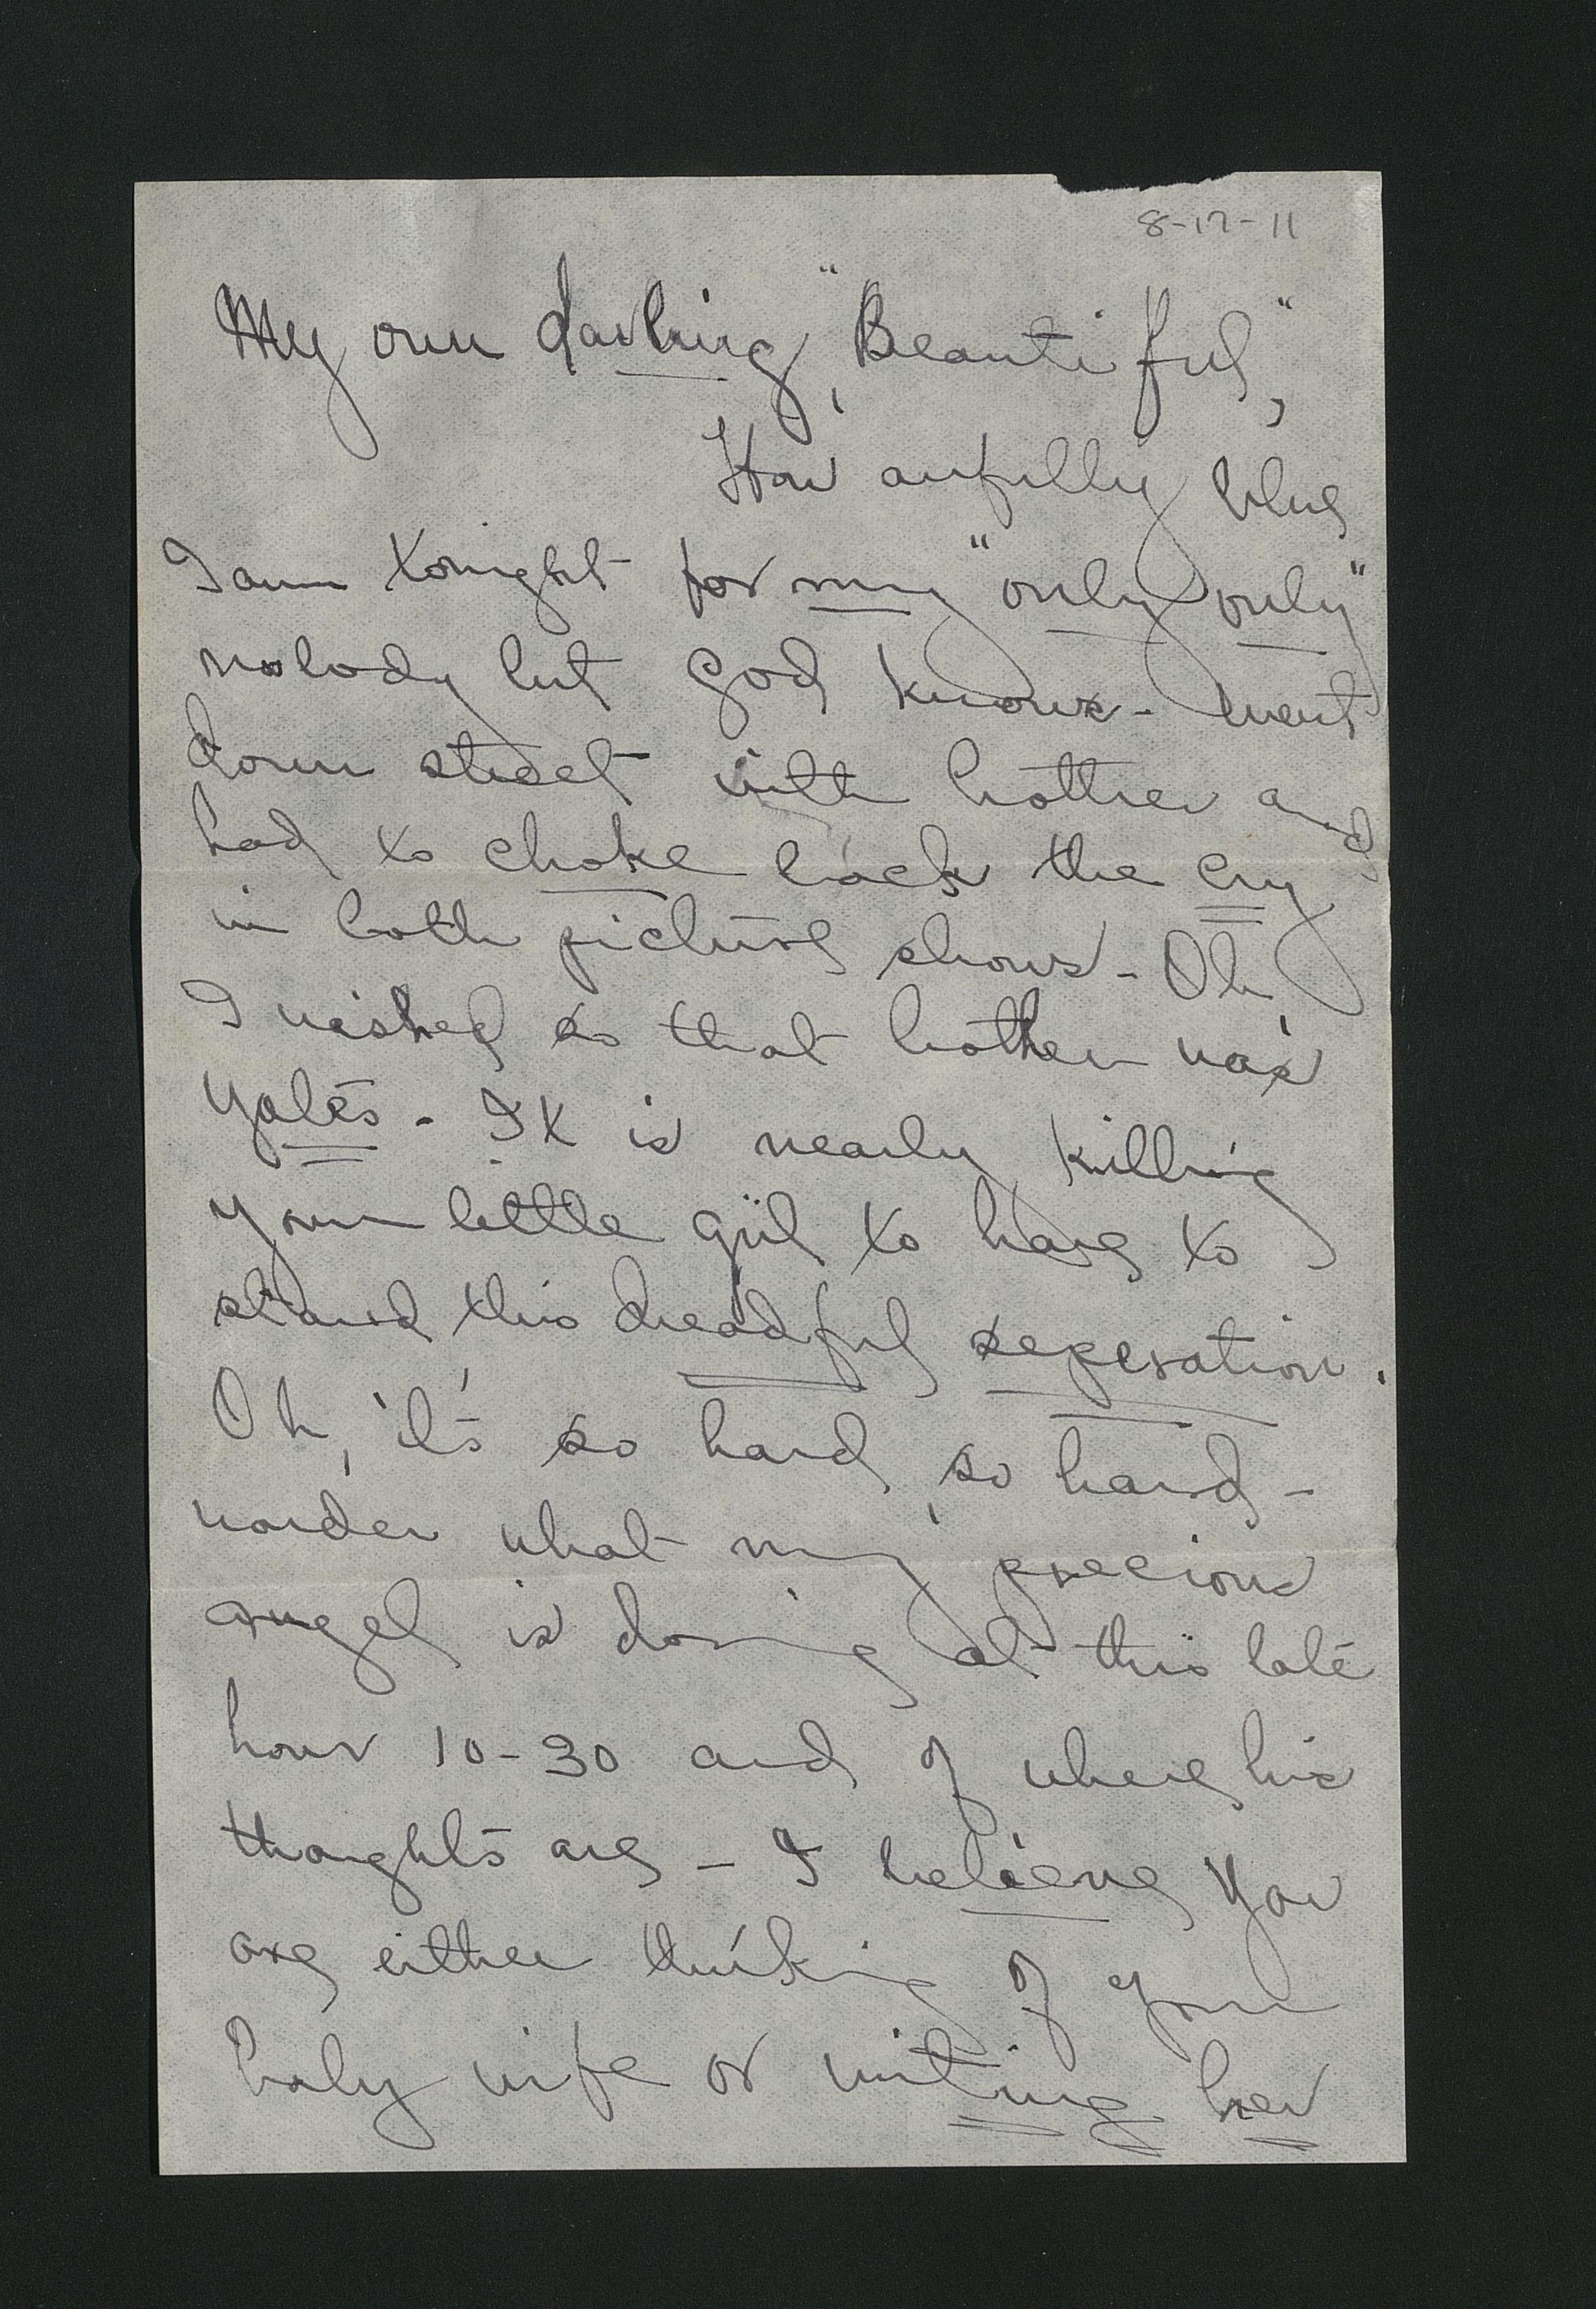 8-17-11
My own darling, "Beautiful,"
How awfully blue
I am tonight for my "only only"
nobody but God knows - Went
down street with brother and
had to choke back the cry
in both picture shows - Oh,
I wished so that brother was
Yates - It is nearly killing
your little girl to have to
stand this dreadful seperation.
Oh, it's so hard, so hard -
wonder what my precious
angel is doing at this late
hour 10-30 and of where his
thoughts are - I believe you
are either thinking of your
baby wife or writing her